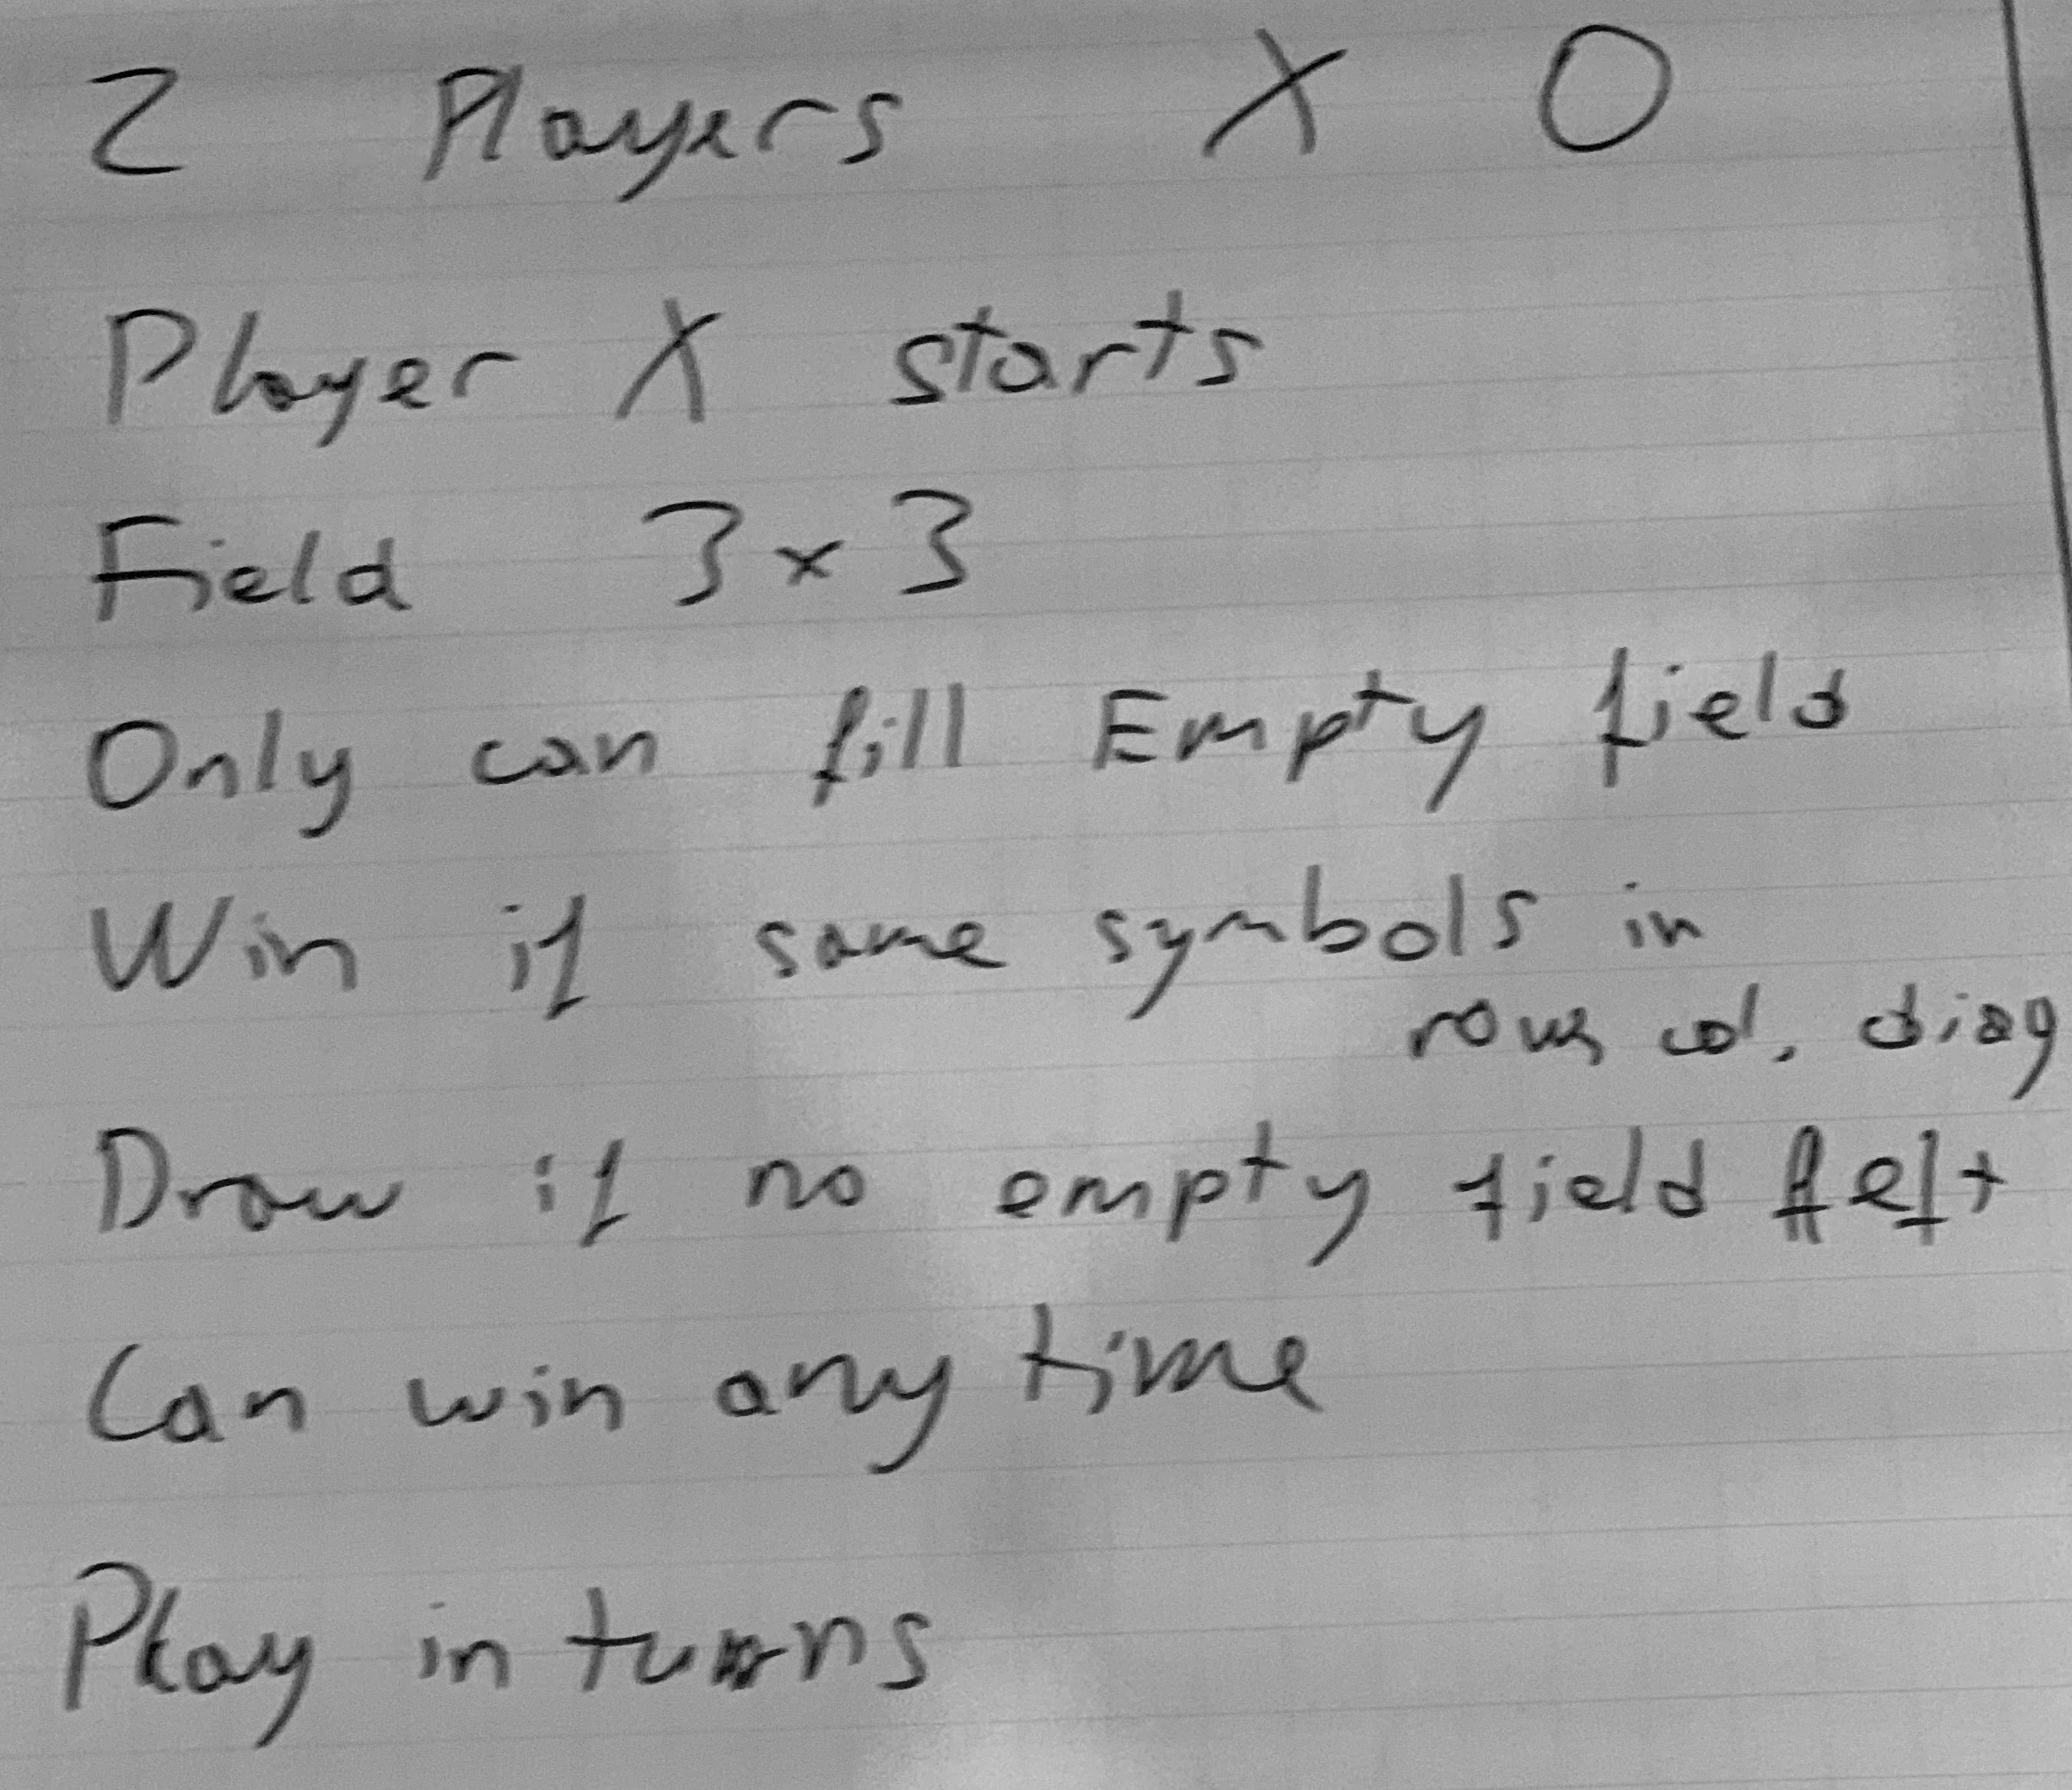 2 Players X O
Player X starts
Field 3x3
Only can fill Empty field
Win if same symbols in
rows col. diag
Draw if no empty field left
Can win any time
Play in turns